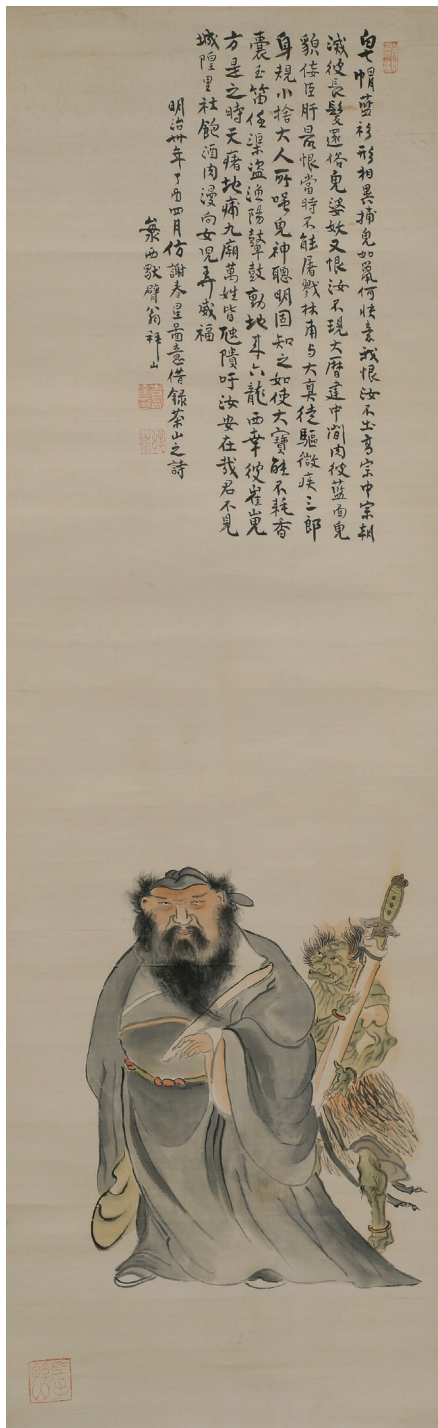 皂帽藍衫形相異捕鬼如鼠何快意我恨汝不出高宗中宗朝
滅彼長髮還俗鬼婆妖又恨汝不現大曆建中間肉彼藍面鬼
貌倭臣肝最恨當時不能屠戮林甫与大真徒驅微疾三郎
身規小捨大人所嗤鬼神聰明固知之如使大寶能不耗香
囊玉笛任渠盜漁陽鼙鼓動地来六龍西幸彼崔嵬
方是之時天瘏地痡九廟萬姓皆虺隤吁汝安在哉君不見
城隍里社飽酒肉漫向女児弄威福
明治卅年丁酉四月仿謝春星啚意借録茶山之詩
西默臂翁祥山